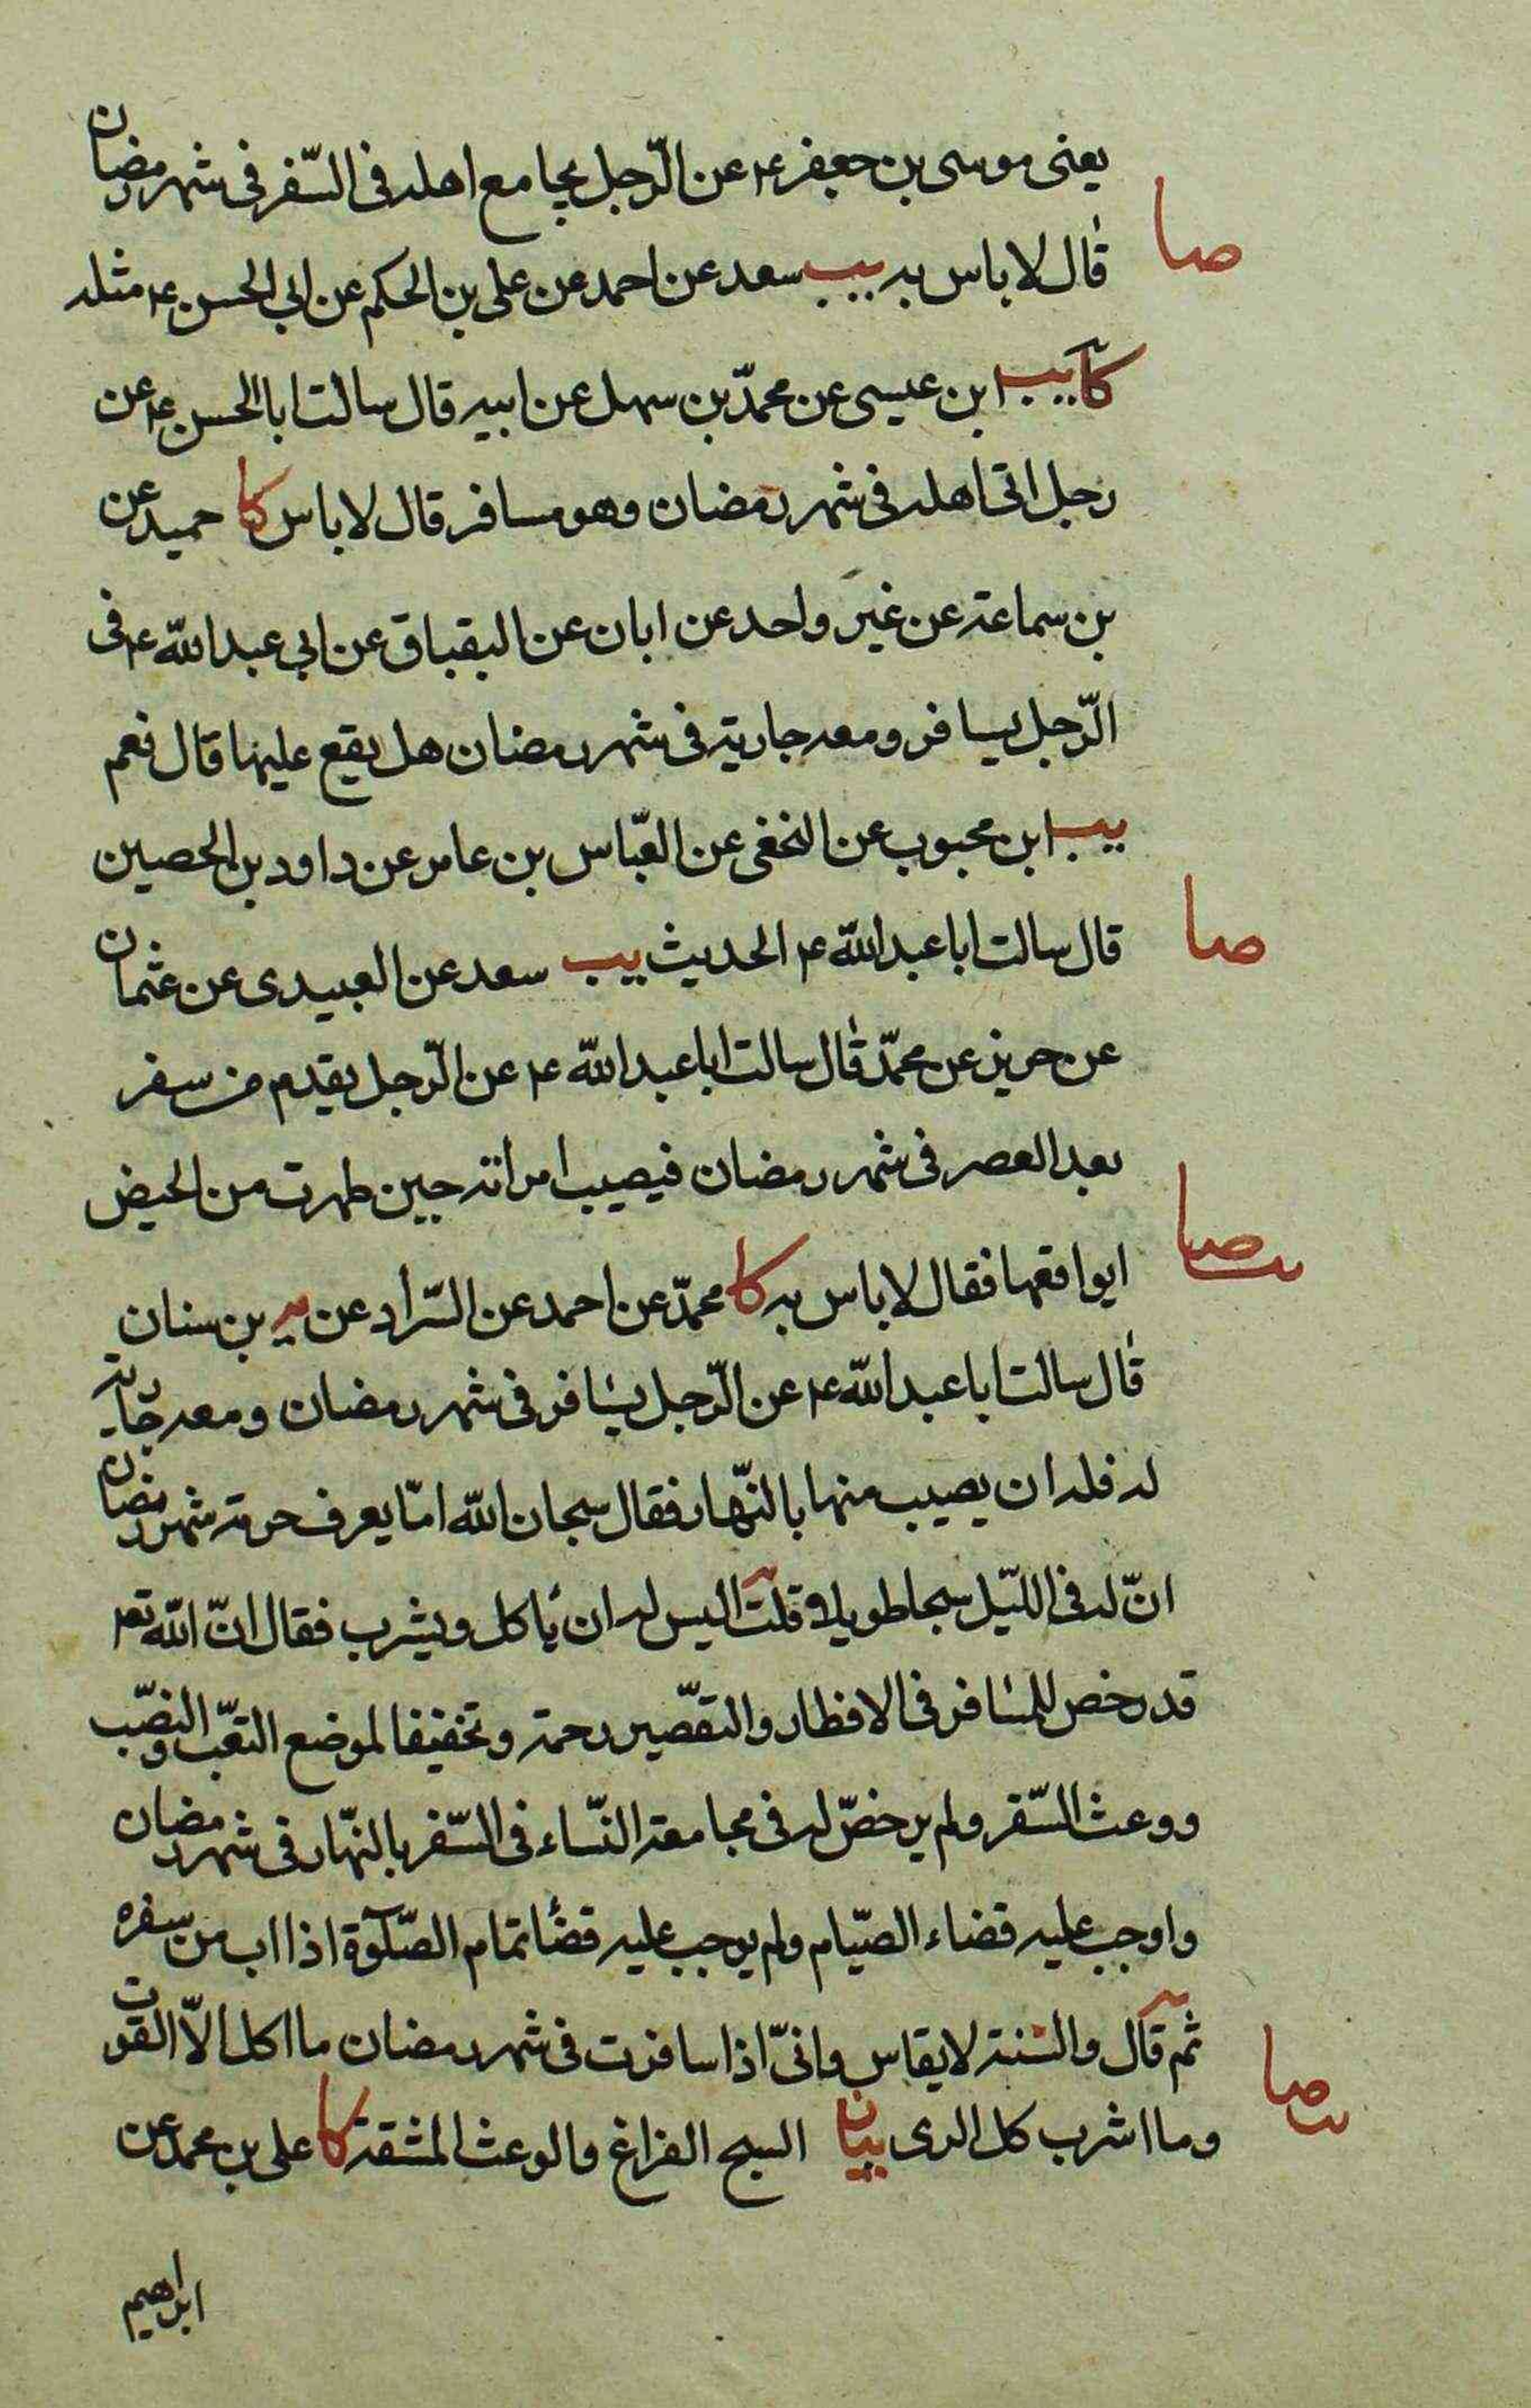 يعنى موسى بن جعفر ع عن الرّجل يجامع اهله فى السّفر فى شهر رمضان
صا
قال لا باس به يب سعد عن احمد عن على بن الحكم عن ابى الحسن ع مثله
كا يب ابن عيسى عن محمّد بن سهل عن ابيه قال سالت ابا الحسن ع عن
رجل اتى اهله فى شهر رمضان وهو مسافر قال لا باس كا حميد عن
بن سماعة عن غير واحد عن ابان عن البقباق عن ابى عبد الله ع فى
الرّجل يسافر ومعه جارية فى شهر رمضان هل يقع عليها قال نعم
يب ابن محبوب عن النخعى عن العبّاس بن عامر عن داود بن الحصين
صا
قال سالت ابا عبد الله ع الحديث يب سعد عن العبيدى عن عثمان
عن حريز عن محمّد قال سالت ابا عبد الله ع عن الرّجل يقدم من سفر
بعد العصر فى شهر رمضان فيصيب امراته حين طهرت من الحيض
صا
ايواقعها فقال لا باس به كا محمّد عن احمد عن السّراد عن بن سنان
قال سالت ابا عبد الله ع عن الرّجل يسافر فى شهر رمضان ومعه جارية
له فله ان يصيب منها بالنّهار فقال سبحان الله امّا يعرف حرمة شهر رمضان
انّ له فى اللّيل سبحا طويلا قلت اليس له ان ياكل ويشرب فقال انّ الله تع
قد رخص للمسافر فى الافطار والتقصّير رحمة وتخفيفا لموضع التعّب والنصّب
ووعث السّفر ولم يرخصّ له فى مجامعة النّساء فى السّفر بالنهّار فى شهر رمضان
واوجب عليه قضاء الصيّام ولم يوجب عليه قضا تمام الصّلوة اذا اب من سفره
ثم قال والسنة لا يقاس وانىّ اذا سافرت فى شهر رمضان ما اكل الاّ القوت
صا
وما اشرب كل الرى بيان السبح الفراغ والوعث المشقة كا على بن محمد عن
ابراهيم